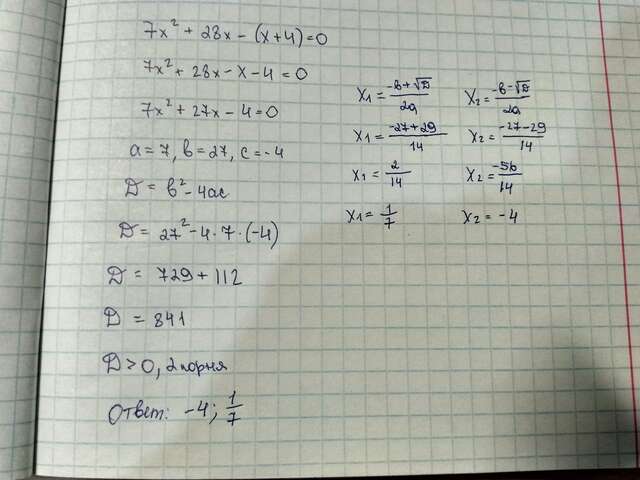 7x² + 28x - (x+4) = 0
7x² + 28x - x - 4 = 0
7x² + 27x - 4 = 0
a = 7, b = 27, c = -4
D = b² - 4ac
D = 27² - 4 · 7 · (-4)
D = 729 + 112
D = 841
D > 0, 2 корня
Ответ: -4; 1/7
x₁ = (-b + √D)/2a
x₁ = (-27 + 29)/14
x₁ = 2/14
x₁ = 1/7
x₂ = (-b - √D)/2a
x₂ = (-27 - 29)/14
x₂ = -56/14
x₂ = -4